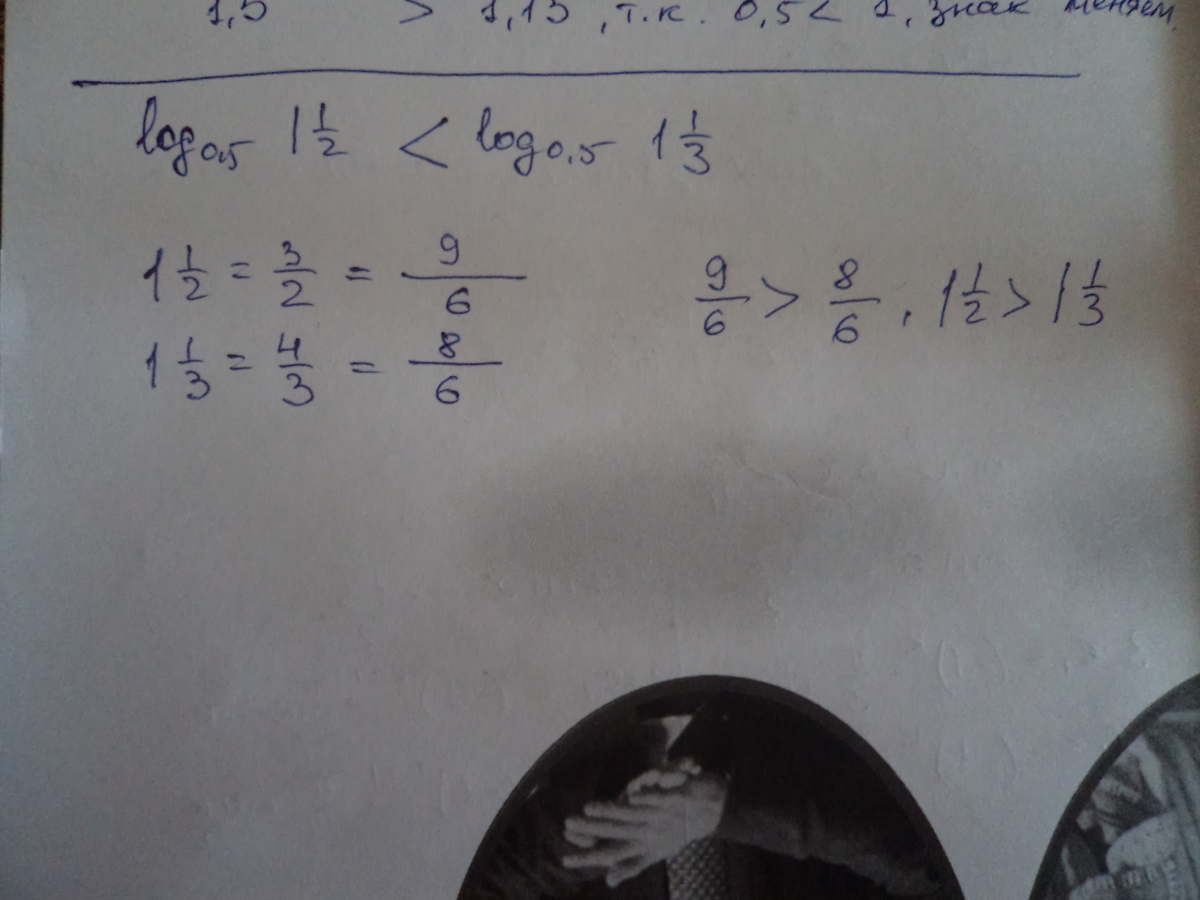 1,5 > 1,15, т.к. 0,5 < 1, знак меняем.
log₀,₅ 1 1/2 < log₀,₅ 1 1/3
1 1/2 = 3/2 = 9/6
1 1/3 = 4/3 = 8/6
9/6 > 8/6, 1 1/2 > 1 1/3